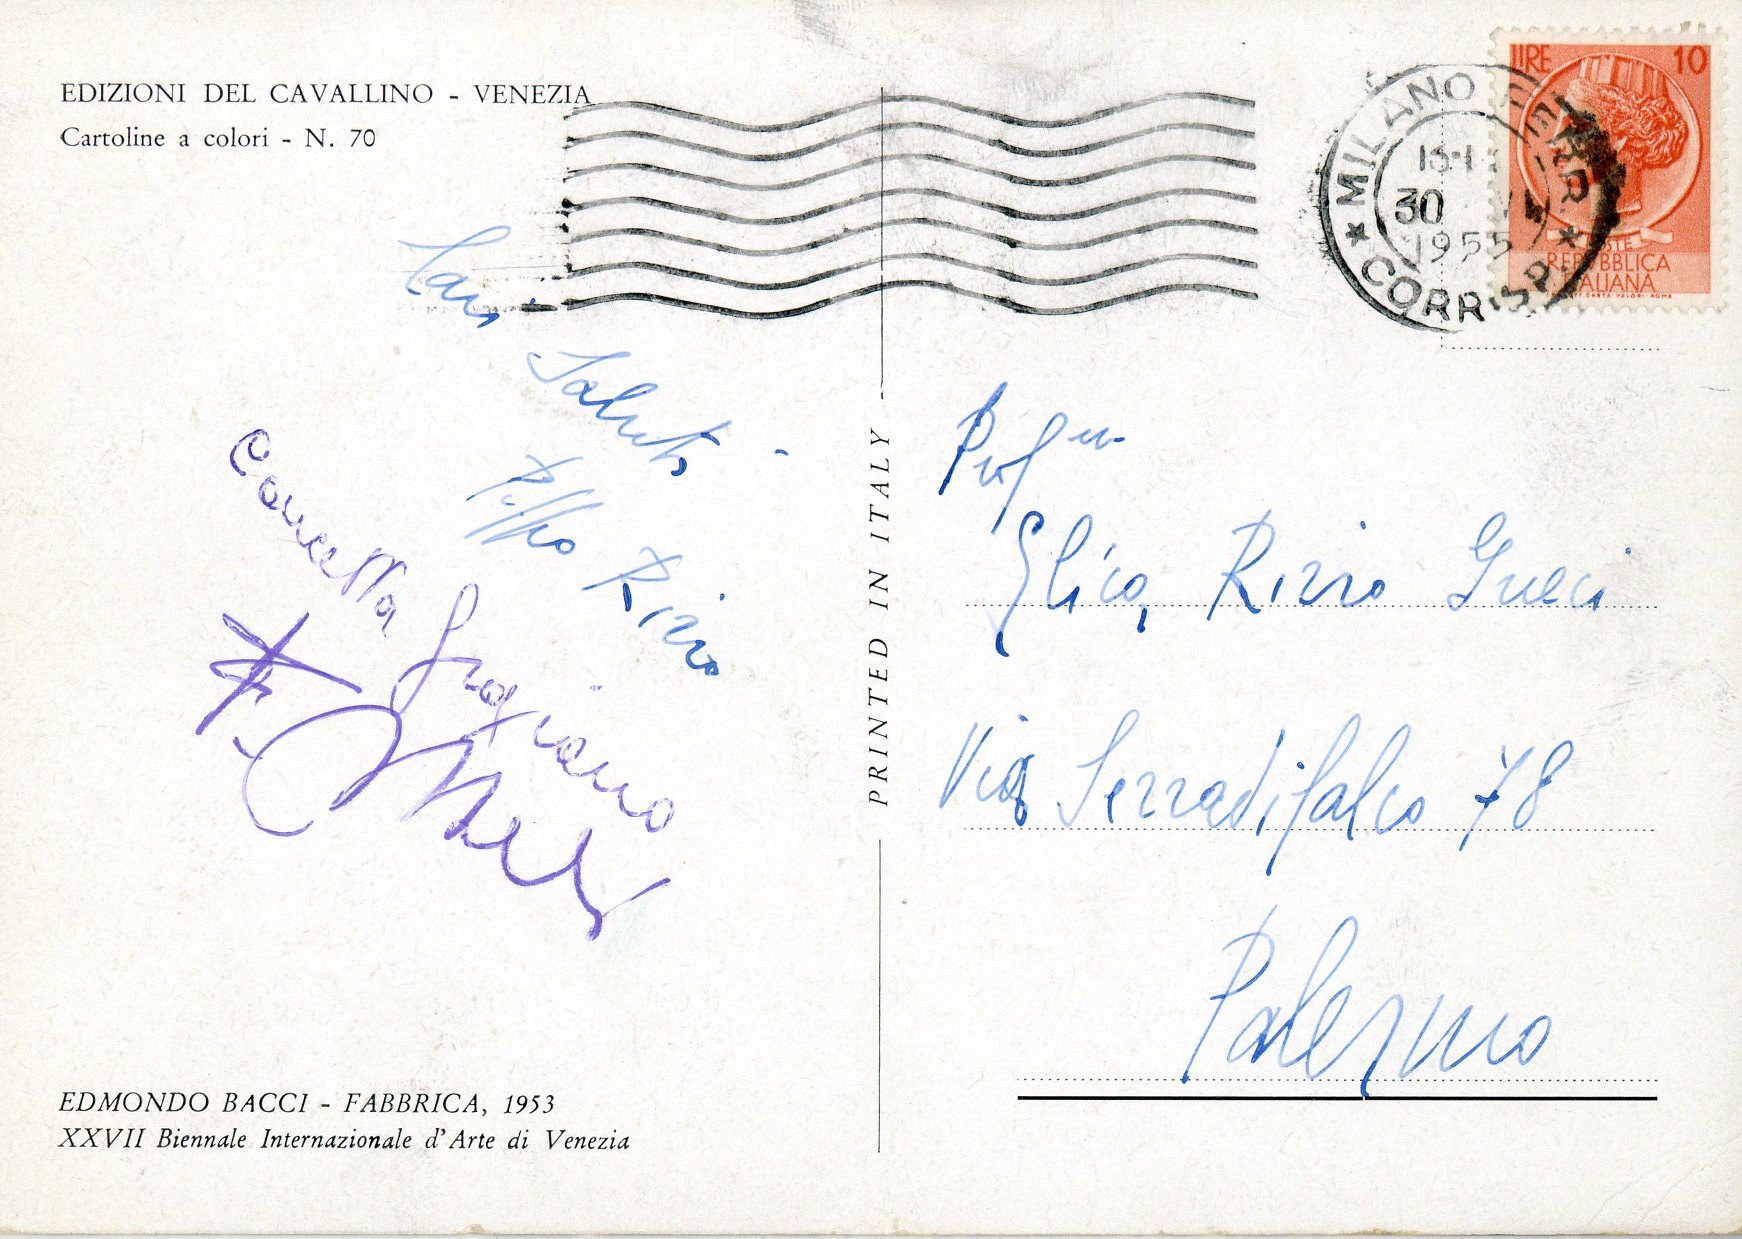 EDIZIONI DEL CAVALLINO - VENEZIA
Cartoline a colori - N. 70
Cari Saluti -
Pippo Rizzo
Concetta Grigiano
PRINTED IN ITALY
MILANO FERR. CORRISP.
30
1955
LIRE 10
POSTE
REPVBBLICA
ITALIANA
Prof
Elica Rizzo Gueci
Via Serradifalco 78
Palermo
EDMONDO BACCI - FABBRICA, 1953
XXVII Biennale Internazionale d'Arte di Venezia